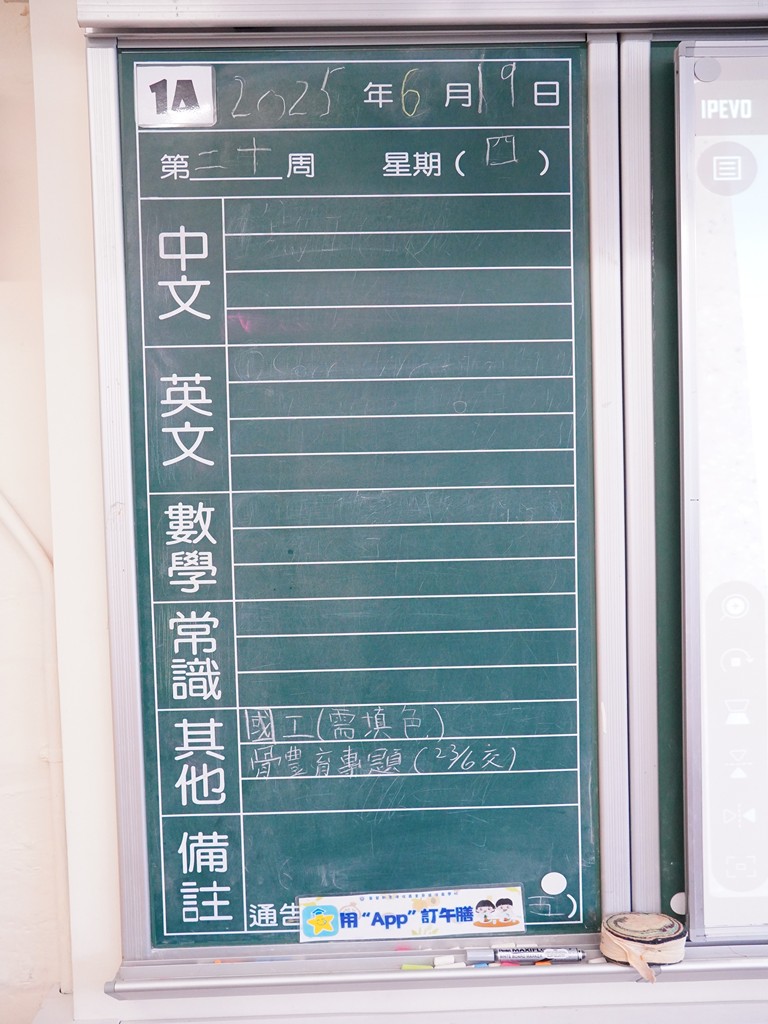 1A 2025 年 6 月 19 日
第 二十 周 星期 ( 四 )
中文
英文
數學
常識
其他
國工(需填色)
體育專題(23/6交)
備註
通告
用 “App” 訂午膳
五 )
IPEVO